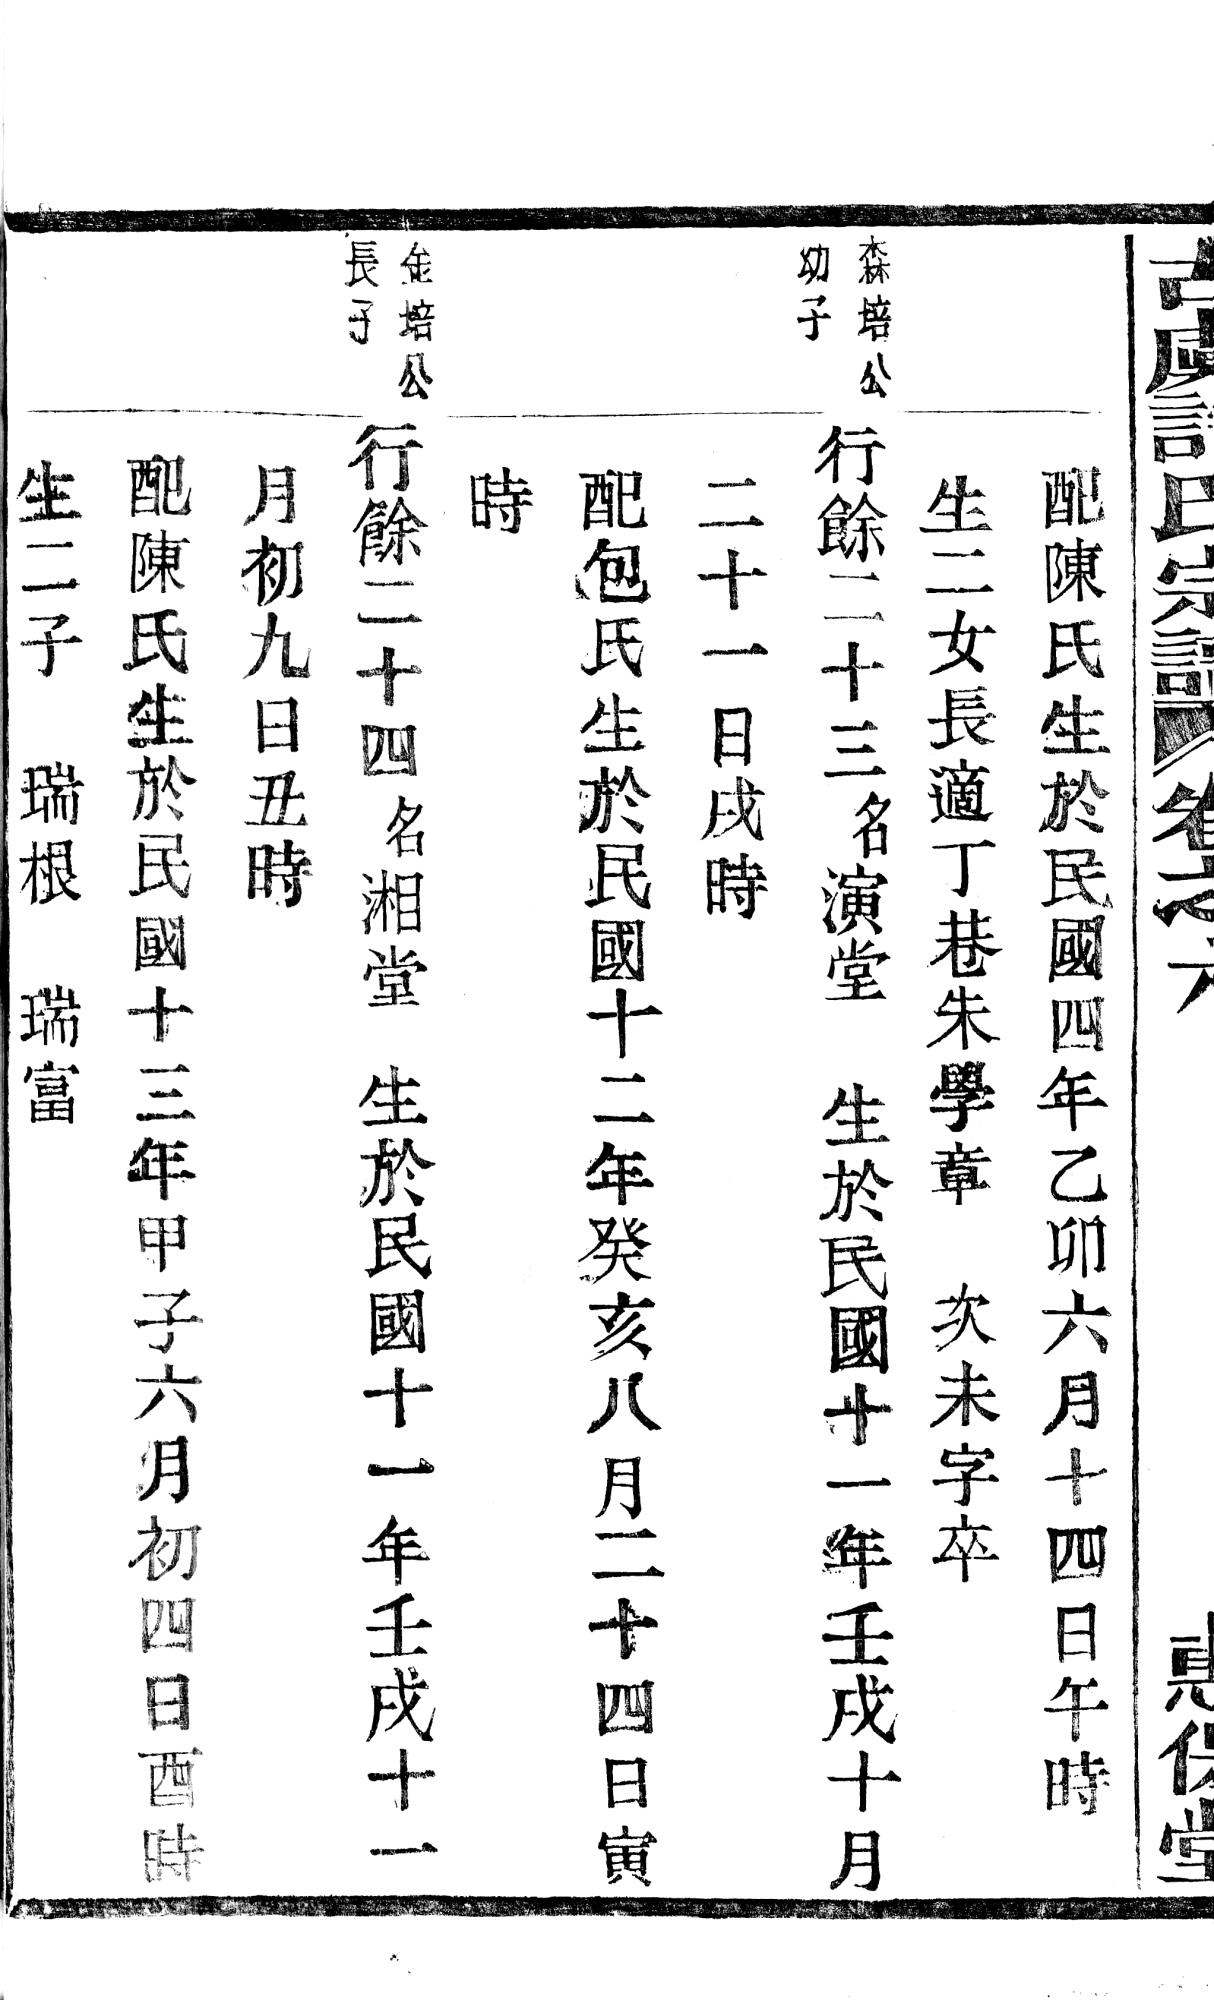 古虞許氏宗譜 卷之六 惠保堂
配陳氏生於民國四年乙卯六月十四日午時
生二女長適丁巷朱學章 次未字卒
森培公
幼子
行餘二十三名演堂 生於民國十一年壬戌十月
二十一日戌時
配包氏生於民國十二年癸亥八月二十四日寅
時
金培公
長子
行餘二十四名湘堂 生於民國十一年壬戌十一
月初九日丑時
配陳氏生於民國十三年甲子六月初四日酉時
生二子 瑞根 瑞富